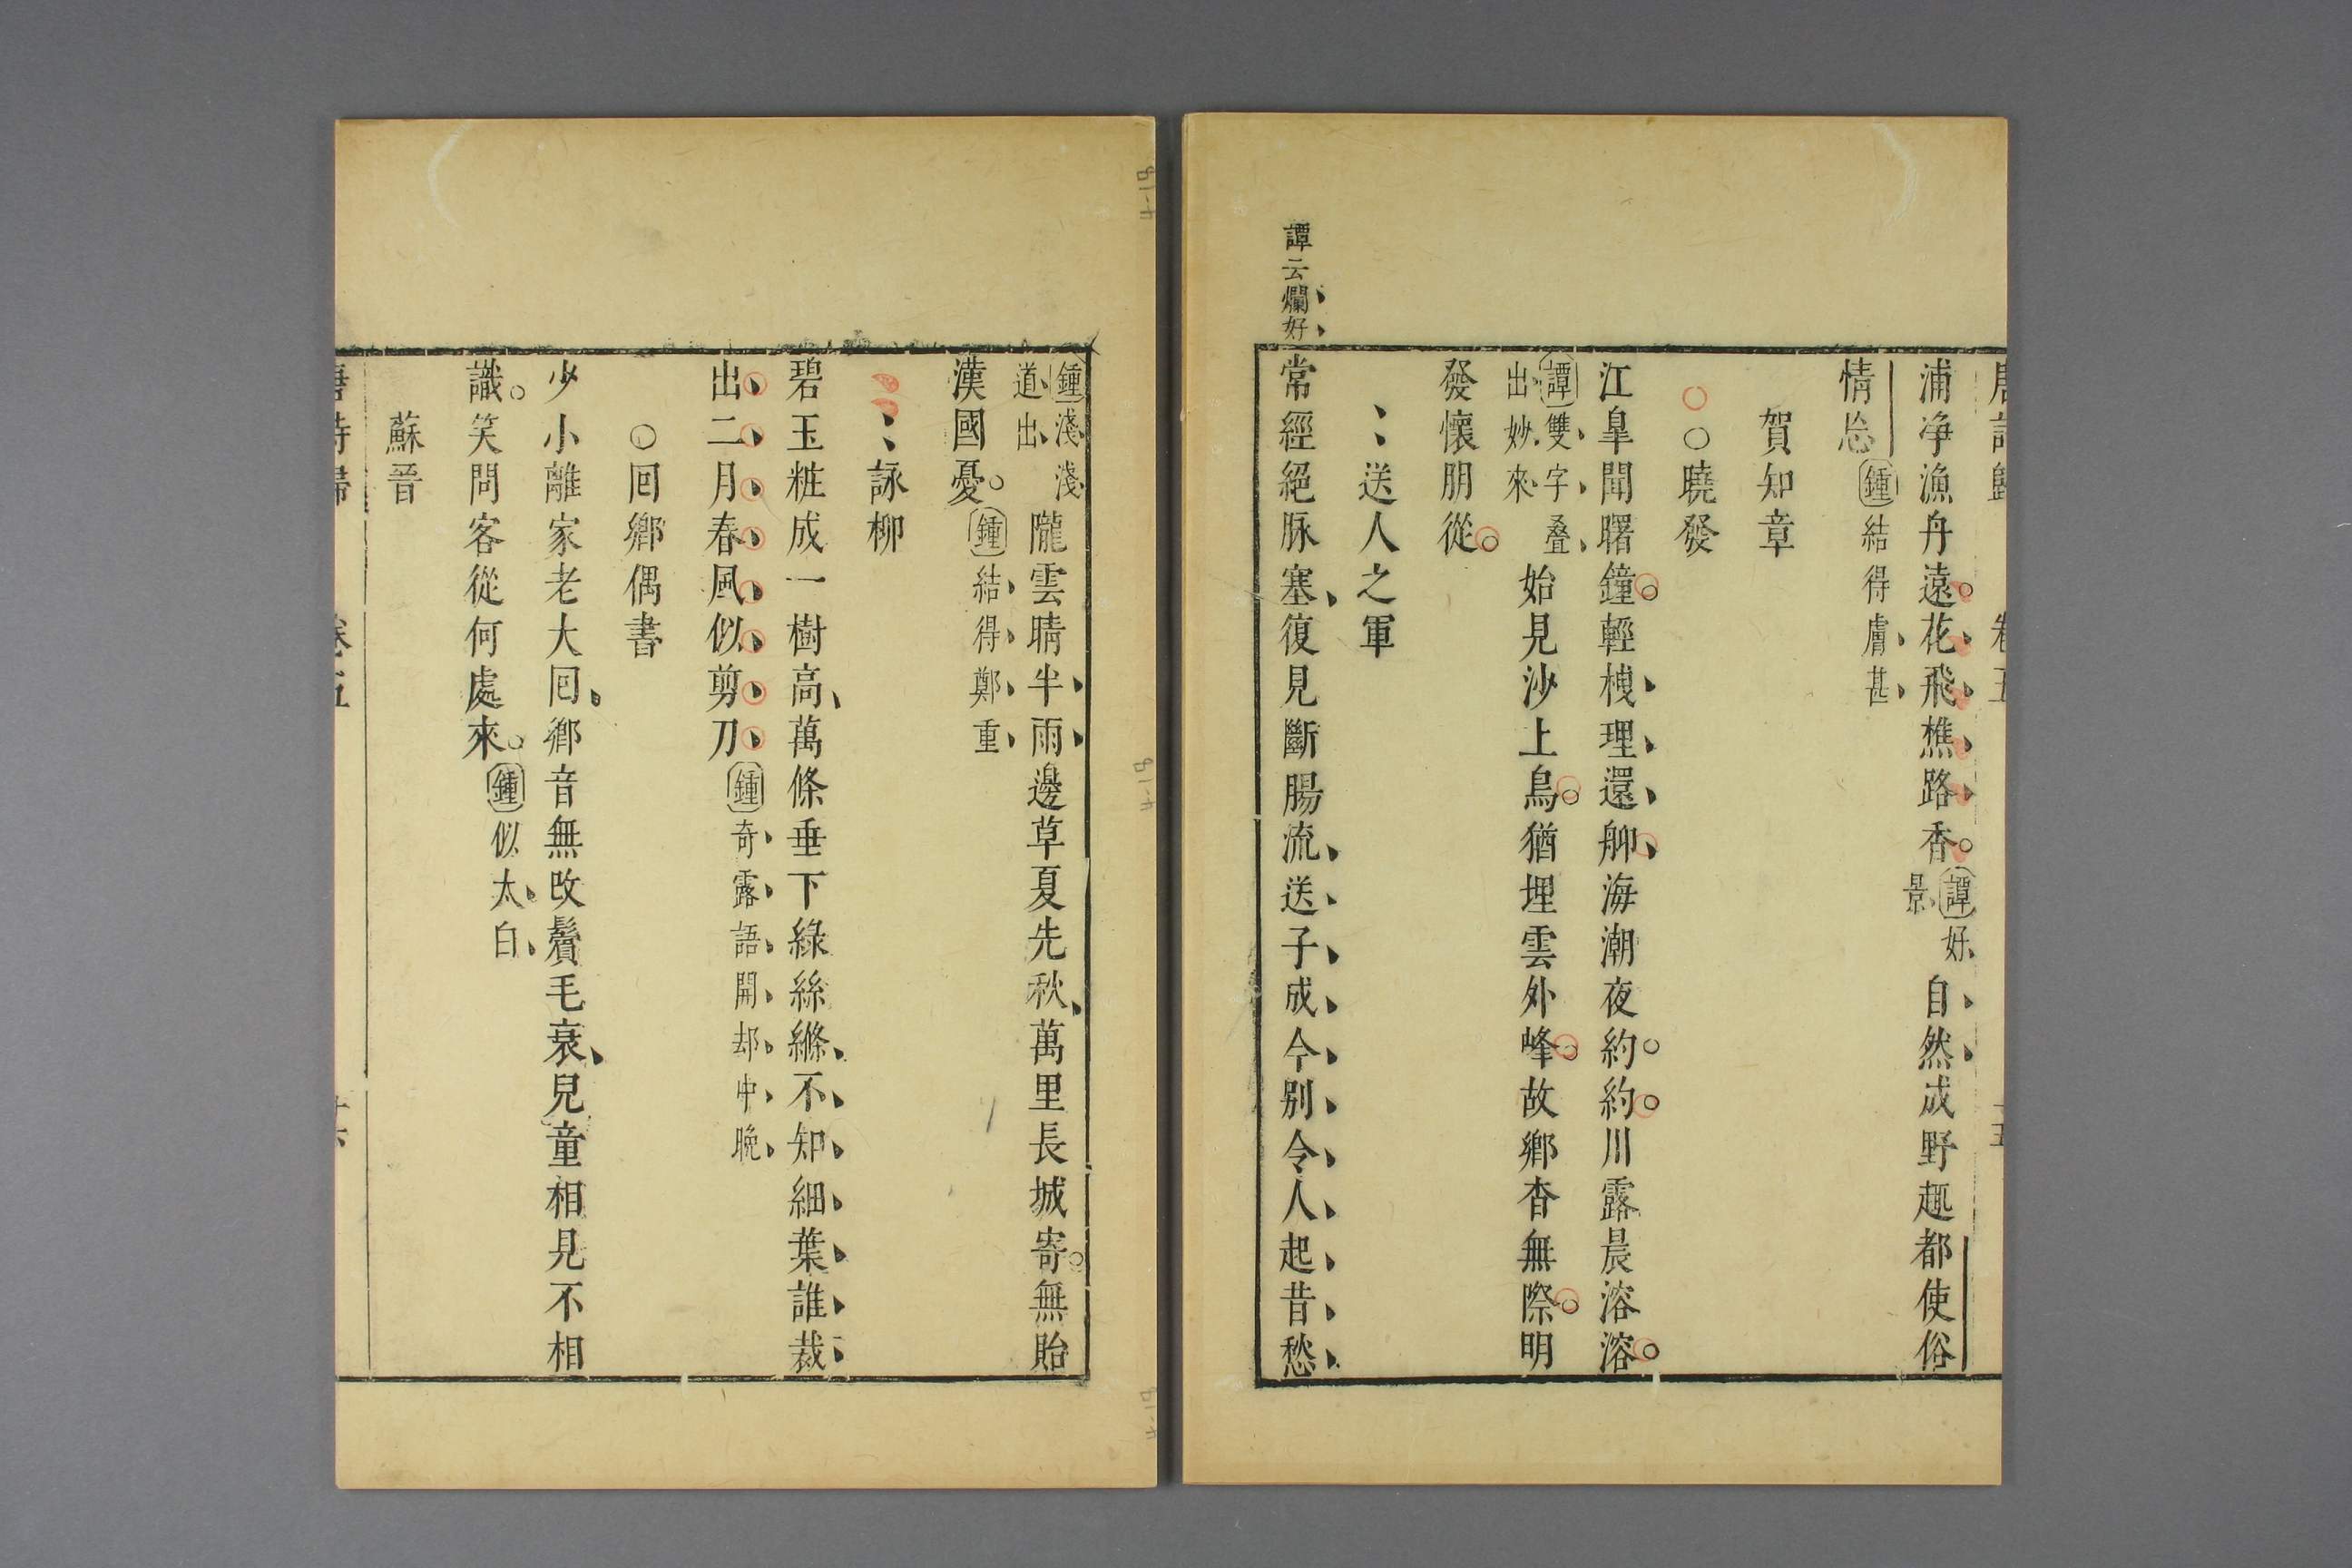 唐詩歸 卷五 十五
浦淨漁舟遠花飛樵路香譚好景自然成野趣都使俗
情忘鍾結得膚甚
賀知章
○○曉發
江皐聞曙鐘輕栧理還舼海潮夜約約川露晨溶溶
譚雙字叠出妙來始見沙上鳥猶埋雲外峰故鄉杳無際明
發懷朋從
送人之軍
譚云爛好
常經絕脉塞復見斷腸流送子成今別令人起昔愁
鍾淺淺道出隴雲晴半雨邊草夏先秋萬里長城寄無貽
漢國憂鍾結得鄭重
詠柳
碧玉粧成一樹高萬條垂下綠絲縧不知細葉誰裁
出二月春風似剪刀鍾奇露語開却中晚
○囘鄉偶書
少小離家老大囘鄉音無改鬢毛衰兒童相見不相
識笑問客從何處來鍾似太白
蘇晉
唐詩歸 卷五 十六